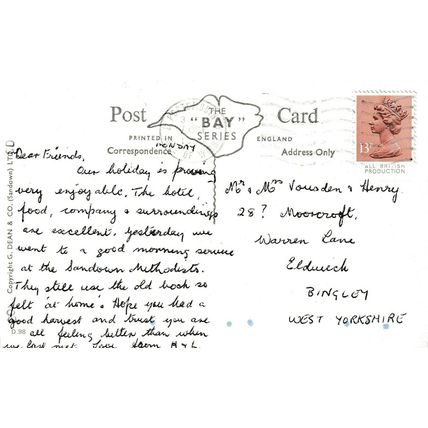 Post Card
THE
"BAY"
SERIES
PRINTED IN ENGLAND
Correspondence
Address Only
MONDAY
13
ALL BRITISH
PRODUCTION
Copyright G. DEAN & CO. (Sandown) LTD.
D.98
Dear Friends,
Our holiday is proving
very enjoyable. The hotel,
food, company & surroundings
are excellent. Yesterday we
went to a good morning service
at the Sandown Methodists.
They still use the old book so
felt 'at home'. Hope you had a
good harvest and trust you are
all feeling better than when
we last met. Love from
Mr & Mrs & Henry
28 Moorcroft,
Warren Lane
Eldwick
BINGLEY
WEST YORKSHIRE